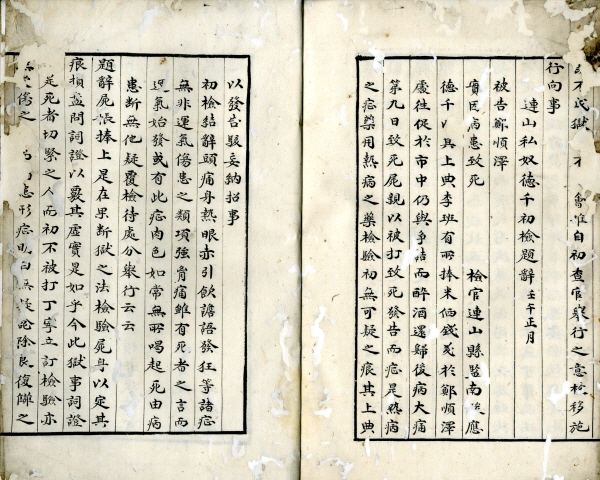 獄
惟自初查官擧行之意枚移施
行向事
連山私奴德千初檢題辭 壬午正月
被告鄭順澤
實因病患致死
檢官連山縣監南
德千以其上典李班有所捧米価錢於鄭順澤
處往促於市中仍與爭詰而醉酒還歸後病大痛
第九日致死屍親以被打致死發告而症是熱病
之症藥用熱病之藥檢驗初無可疑之痕其上典
以發告駭妄納招事
初檢結辭頭痛身熱眼赤引飮譫語發狂等諸症
無非運氣傷患之類項强脊痛雖有死者之言而
運氣始發或有此症肉色如常無所喝起死由病
患斷無他疑覆檢待處分擧行云云
題辭屍帳捧上是在果斷獄之法檢驗屍身以定其
痕損盤問詞證以覈其虛實是如乎今此獄事詞證
是死者切緊之人而初不被打丁寧立訂檢驗亦
形症昭白無疑除良復陣之